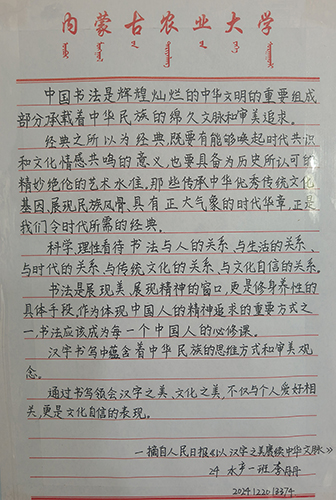 内蒙古农业大学
中国书法是辉煌灿烂的中华文明的重要组成
部分承载着中华民族的绵久文脉和审美追求。
经典之所以为经典,既要有能够唤起时代共识
和文化情感共鸣的意义,也要具备为历史所认可的
精妙绝伦的艺术水准,那些传承中华优秀传统文化
基因,展现民族风骨、具有正大气象的时代华章,正是
我们今时代所需的经典。
科学、理性看待书法与人的关系、与生活的关系、
与时代的关系、与传统文化的关系、与文化自信的关系。
书法是展现美、展现精神的窗口,更是修身养性的
具体手段,作为体现中国人的精神追求的重要方式之
一,书法应该成为每一个中国人的必修课。
汉字书写中蕴含着中华民族的思维方式和审美观
念。
通过书写领会汉字之美、文化之美,不仅与个人爱好相
关,更是文化自信的表现。
—摘自人民日报《以汉字之美赓续中华文脉》
24水产一班李丹丹